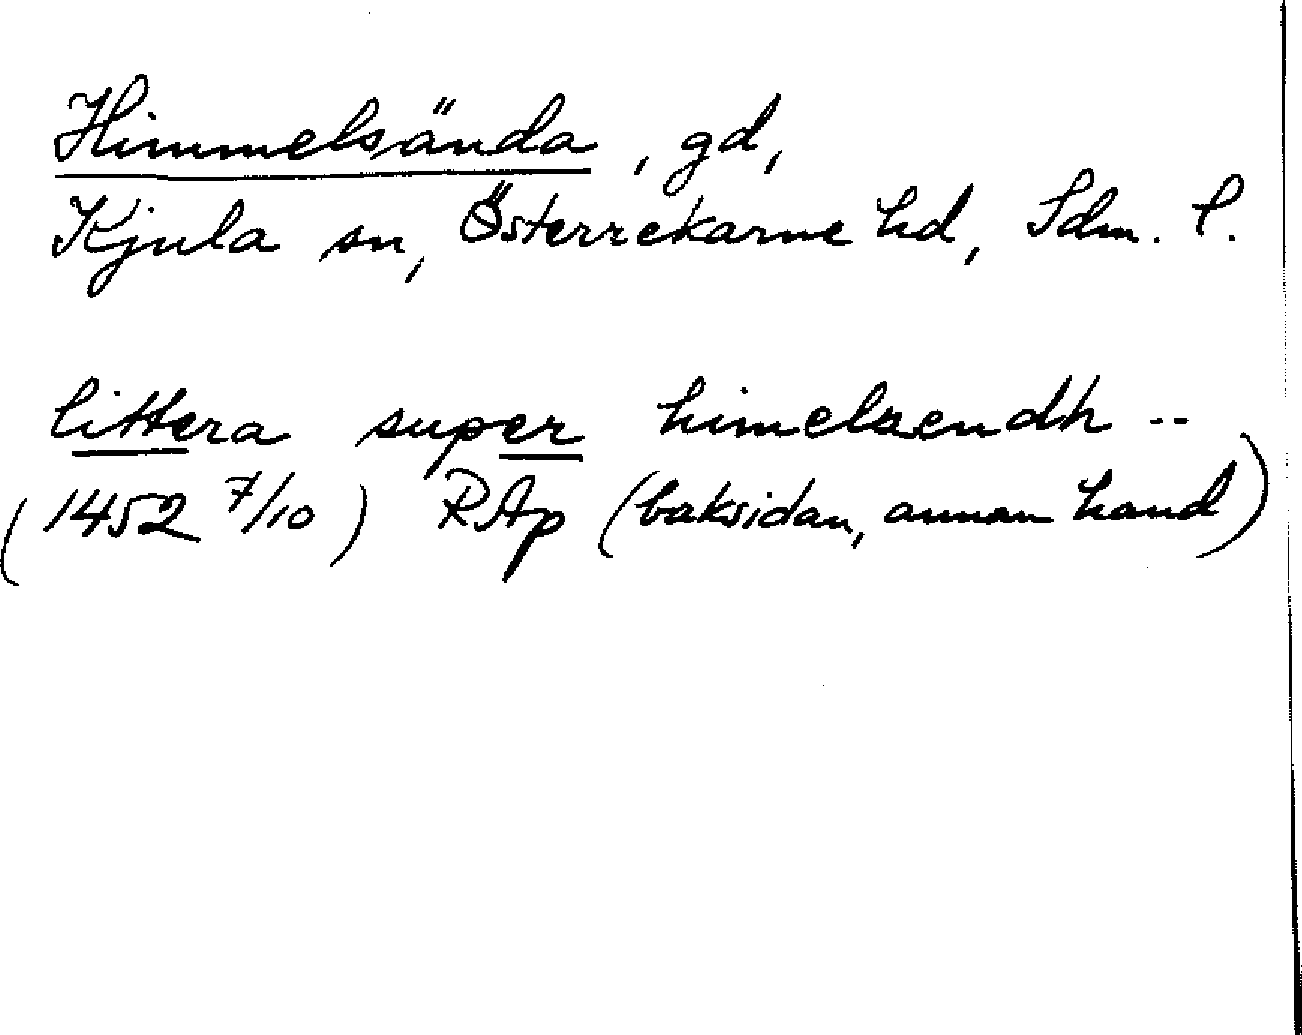 Himmelsända, gd,
Kjula sn, Österrekarne hd, Sdm. l.
littera super himelsendh --
(1452 7/10) RAp (baksidan, annan hand)